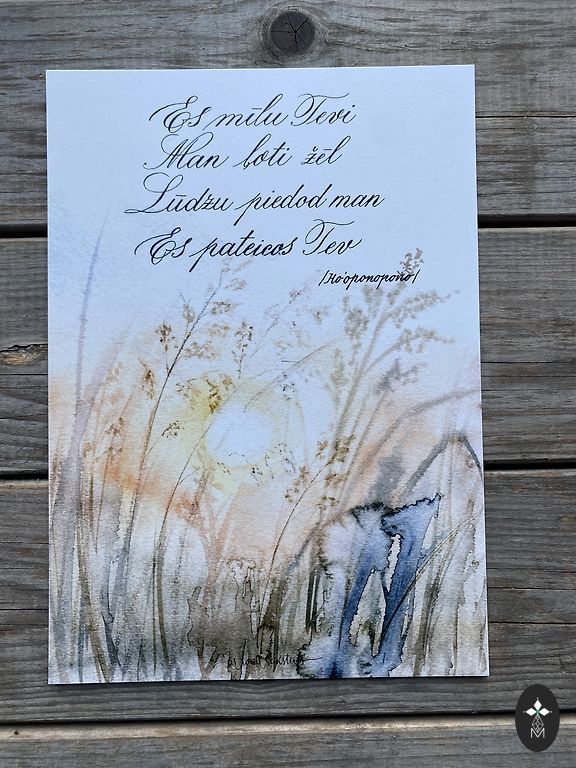 Es mīlu Tevi
Man ļoti žēl
Lūdzu piedod man
Es pateicos Tev
/Ho'oponopono/
M